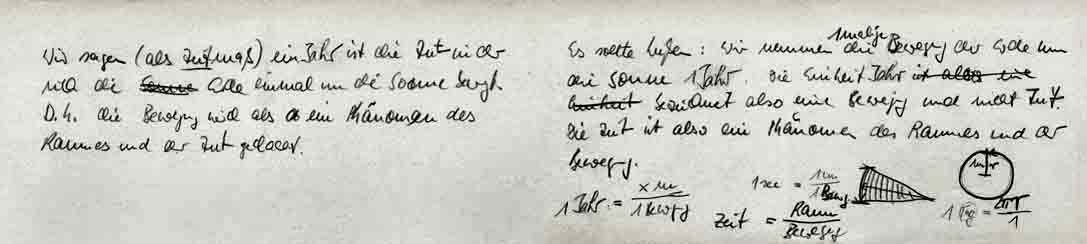 Wir sagen (als Zeitmaß) ein Jahr ist die Zeit in der
sich die Sonne Erde einmal um die Sonne bewegt.
D.h. die Bewegung wird als ein Phänomen des
Raumes und der Zeit gedacht.
Es sollte heißen: Wir nennen die 1malige Bewegung der Erde um
die Sonne 1 Jahr. Die Einheit Jahr ist also eine
Einheit bezeichnet also eine Bewegung und nicht Zeit.
Die Zeit ist also ein Phänomen des Raumes und der
Bewegung.
1 Jahr = x m / 1 Bewegg
1 sec = 1 m / 1 Beweg
Zeit = Raum / Bewegg
1 Tag = 2πr / 1